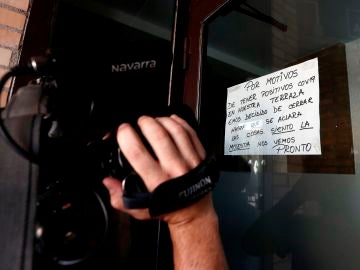 Navarra
POR MOTIVOS
DE TENER POSITIVOS COVI9
EN NUESTRA TERRAZA
EMOS DECIDIDO DE CERRAR
HASTA QUE SE ACLARA
LAS COSAS SIENTO LA
MOLESTIA NOS VEMOS
PRONTO
FUJINON